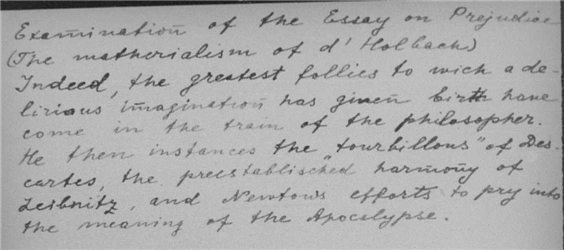 Examination of the Essay on Prejudice
(The matherialism of d'Holbach)
Indeed, the greatest follies to wich a de-
lirious imagination has given birth have
come in the train of the philosopher.
He then instances the "tourbillous" of Des-
cartes, the preestablisched harmony of
Leibnitz, and Newtows efforts to pry into
the meaning of the Apocalypse.